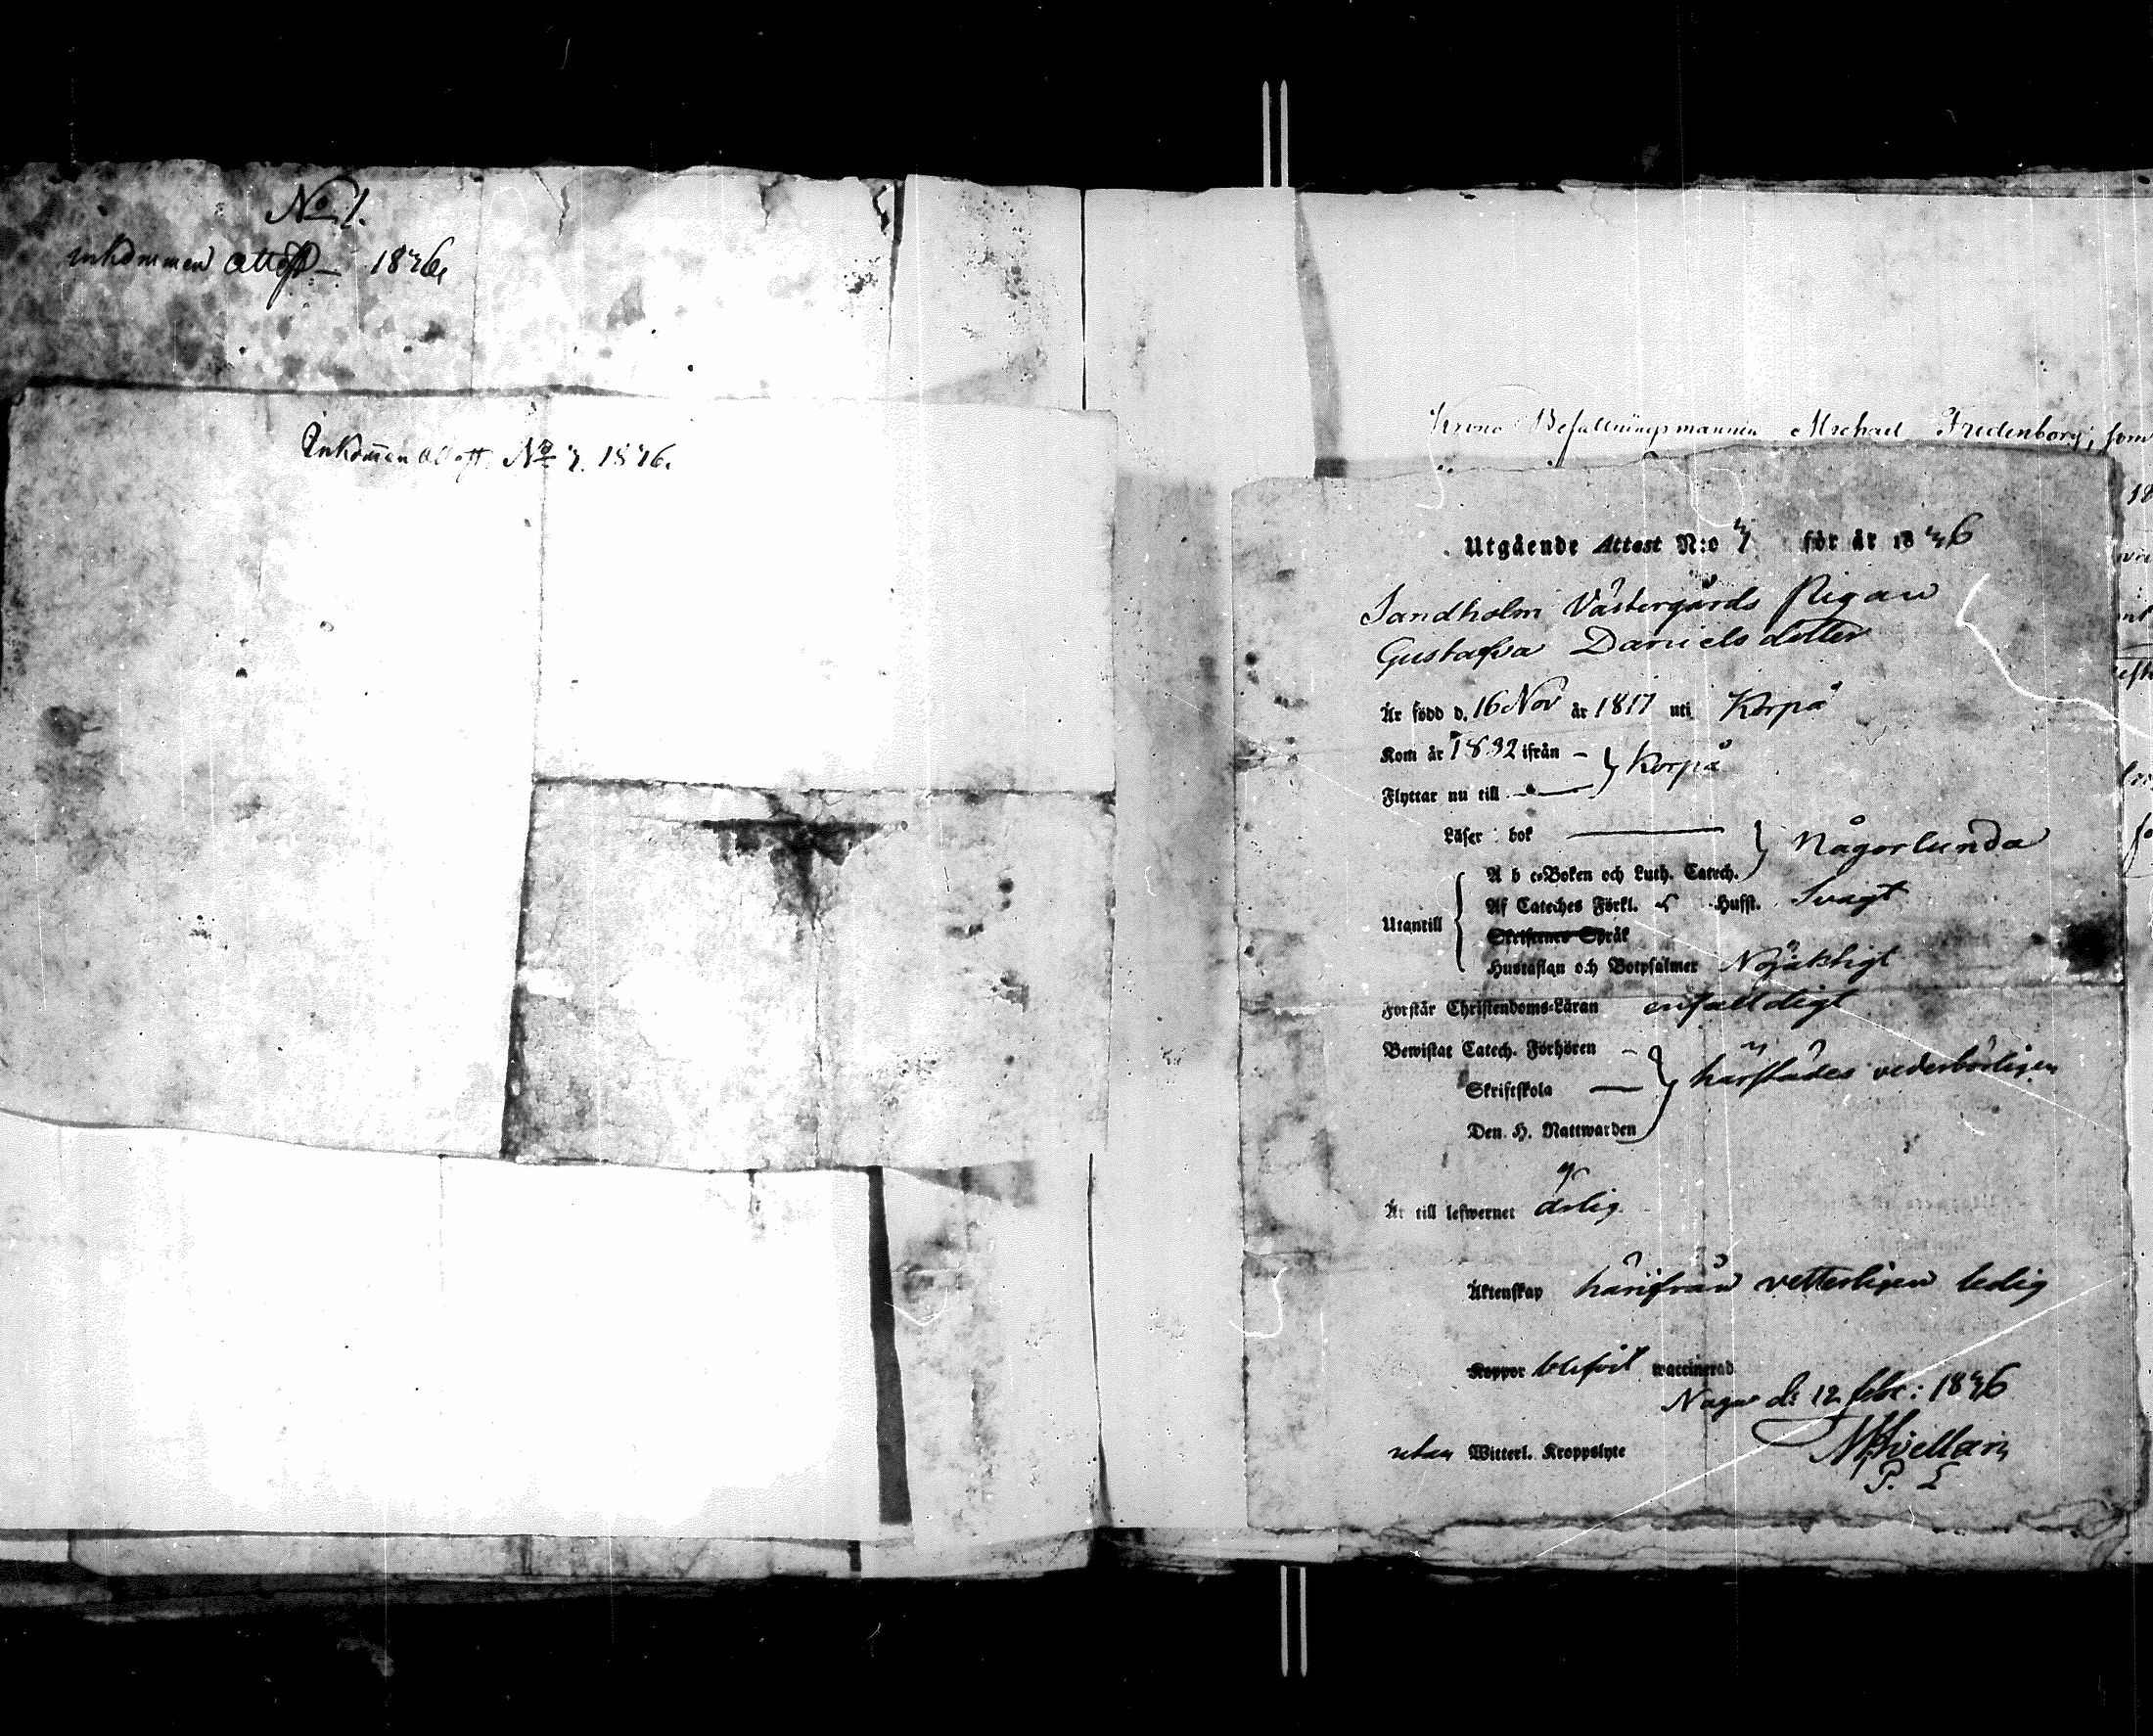 No 1.
inkommen attest 1846
Inkom̄en attest No 4. 1846.
Krono Befallningsmannen Michael Fredenborg, som
Utgående Attest N:o 4 för år 1846
Sandholm Västergårds Pigan
Gustafva Danielsdotter
Är född d. 16 Nov år 1817 uti Korpå
Kom år 1832 ifrån – } Korpå
Flyttar nu till —
Läser bok — } Någorlunda
A b c-Boken och Luth. Catech.
Utantill { Af Cateches Förkl. Hufst. Svagt
Skrifternes Språk
Hustaflan och Botpsalmer Nöjaktigt
Förstår Christendoms-Läran enfaldigt
Bewistat Catech. Förhören –
Skriftskola — } härstädes vederbörligen
Den H. Nattwarden
Är till lefwernet ärlig
Äktenskap härifrån vetterligen ledig
Koppor blifvit waccinerad
Nagu d: 12 febr: 1846
utan Witterl. Kroppslyte